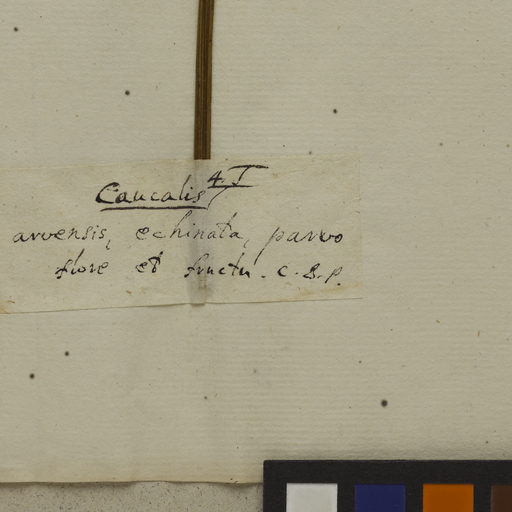 Caucalis 4. I
arvensis, echinata, parvo
flore et fructu. C. B. P.